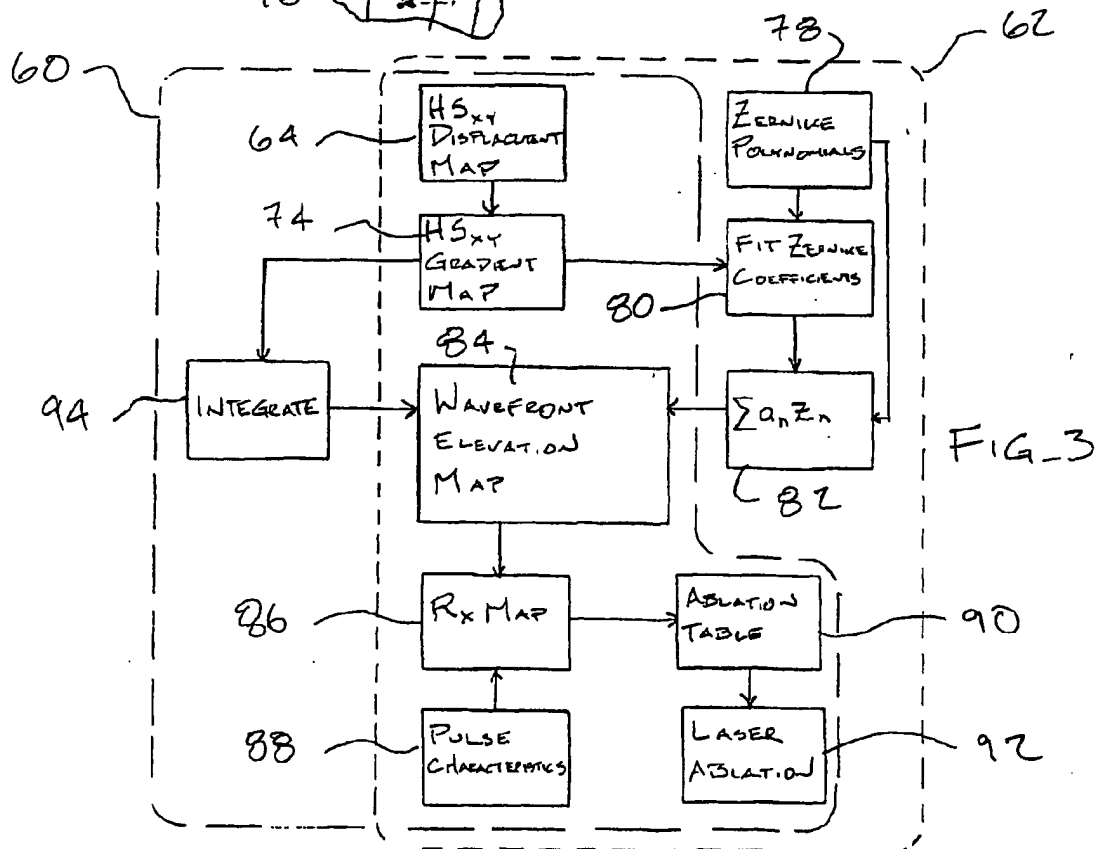 78
62
60
HSxy
DISPLACMENT
MAP
64
ZERNIKE
POLYNOMIALS
74
HSxy
GRADIENT
MAP
FIT ZERNIKE
COEFFICIENTS
80
84
94
INTEGRATE
WAVEFRONT
ELEVATION
MAP
∑ anZn
82
FIG_3
86
Rx MAP
ABLATION
TABLE
90
88
PULSE
CHARACTERISTICS
LASER
ABLATION
92